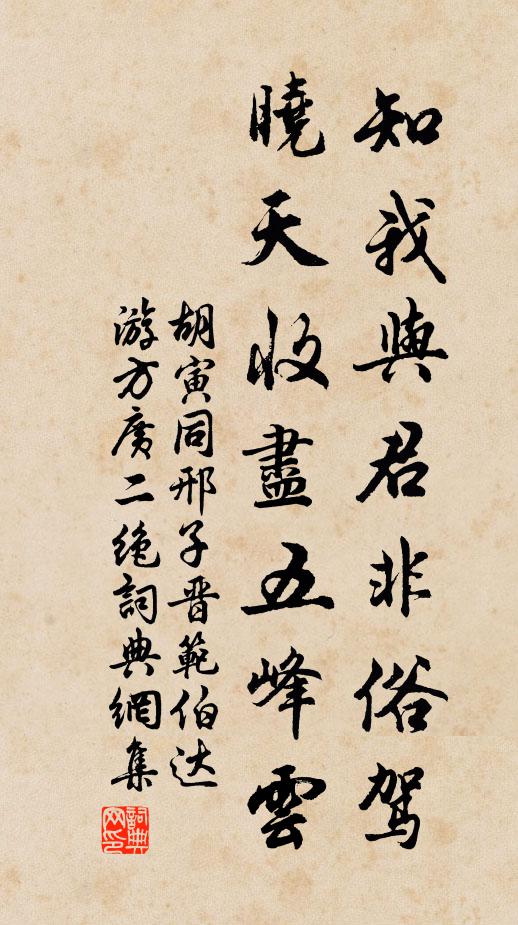 知我與君非俗駕
曉天收盡五峰雲
胡寅同邢子晋範伯达
游方廣二絶詞典網集
詞典网印